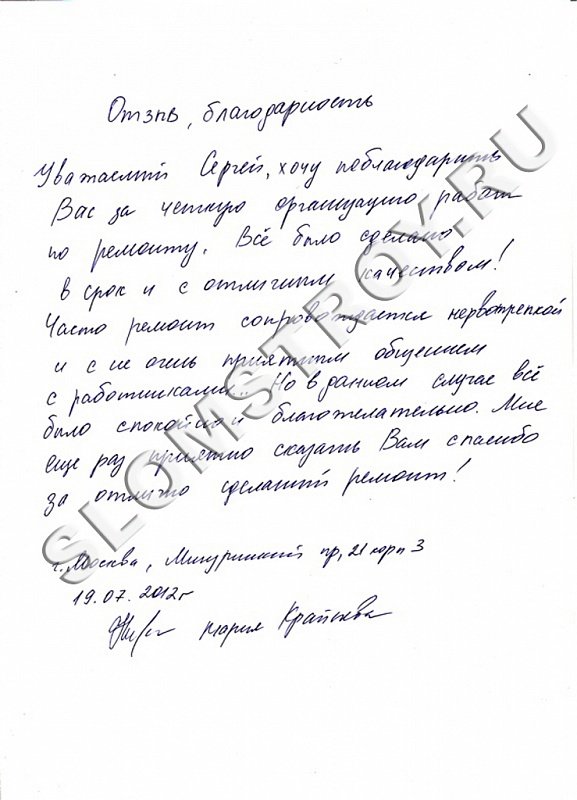 Отзыв, благодарность
Уважаемый Сергей, хочу поблагодарить
Вас за четкую организацию работ
по ремонту. Всё было сделано
в срок и с отличным качеством!
Часто ремонт сопровождается нервотрепкой
и с не очень приятным общением
с работниками... Но в данном случае всё
было спокойно и благожелательно. Мне
еще раз приятно сказать Вам спасибо
за отлично сделанный ремонт!
г. Москва, Мичуринский пр, 21 корп 3
19.07.2012г
Мария
SLOMSTROY.RU